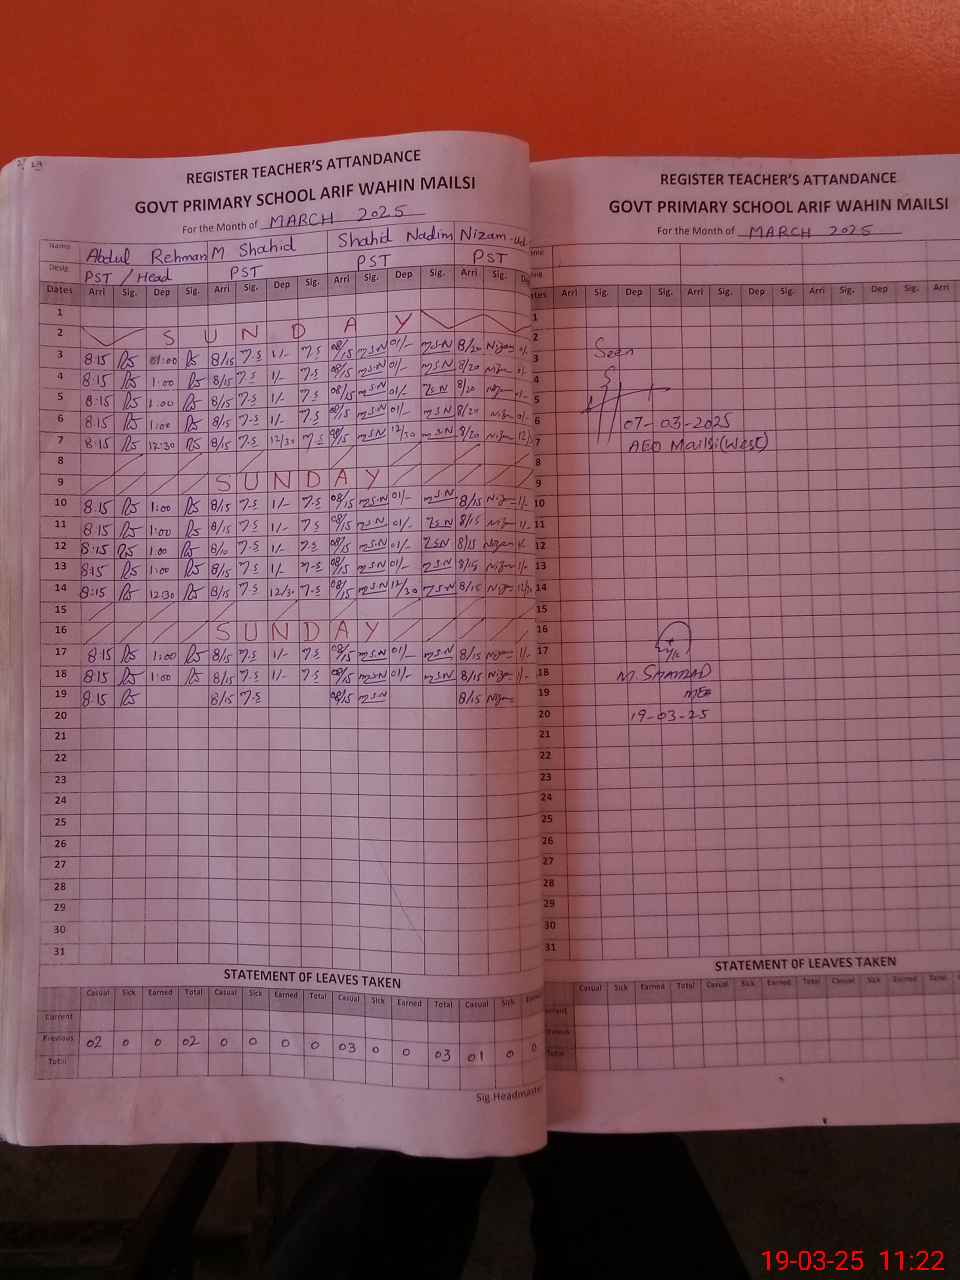 REGISTER TEACHER'S ATTANDANCE
GOVT PRIMARY SCHOOL ARIF WAHIN MAILSI
For the Month of MARCH 2025
Name Abdul Rehman M Shahid Shahid Nadim Nizam-ud
Desig PST / Head PST PST PST
Dates Arri Sig. Dep Sig. Arri Sig. Dep Sig. Arri Sig. Dep Sig. Arri Sig. De
1
2 S U N D A Y
3 8:15 01:00 8/15 7-S 1/- 7-S 08/15 MSN 01/- MSN 8/20 Nizam 01-
4 8:15 1:00 8/15 7-S 1/- 7-S 08/15 MSN 01/- MSN 8/20 Nizam 01-
5 8:15 1:00 8/15 7-S 1/- 7-S 08/15 MSN 01/- MSN 8/20 Nizam 01-
6 8:15 1:00 8/15 7-S 1/- 7-S 08/15 MSN 01/- MSN 8/20 Nizam 01-
7 8:15 12:30 8/15 7-S 12/30 7-S 08/15 MSN 12/30 MSN 8/20 Nizam
8
9 S U N D A Y
10 8:15 1:00 8/15 7-S 1/- 7-S 08/15 MSN 01/- MSN 8/15 Nizam 1/-
11 8:15 1:00 8/15 7-S 1/- 7-S 08/15 MSN 01/- MSN 8/15 Nizam 1/-
12 8:15 1:00 7-S 1/- 7-S 08/15 MSN 01/- MSN 8/15 Nizam
13 8:15 1:00 8/15 7-S 1/- 7-S 08/15 MSN 01/- MSN 8/15 Nizam 1/-
14 8:15 12:30 8/15 7-S 12/30 7-S 08/15 MSN 12/30 MSN 8/15 Nizam
15
16 S U N D A Y
17 8:15 1:00 8/15 7-S 1/- 7-S 08/15 MSN 01/- MSN 8/15 Nizam 1/-
18 8:15 1:00 8/15 7-S 1/- 7-S 08/15 MSN 01/- MSN 8/15 Nizam 1/-
19 8:15 8/15 7-S 08/15 MSN 8/15 Nizam
20
21
22
23
24
25
26
27
28
29
30
31
STATEMENT OF LEAVES TAKEN
Casual Sick Earned Total Casual Sick Earned Total Casual Sick Earned Total Casual Sick Earned
Current
Previous 02 0 0 02 0 0 0 0 03 0 0 03 01 0 0
Total
Sig.Headmaster
REGISTER TEACHER'S ATTANDANCE
GOVT PRIMARY SCHOOL ARIF WAHIN MAILSI
For the Month of MARCH 2025
Arri Sig. Dep Sig. Arri Sig. Dep Sig. Arri Sig. Dep Sig. Arri
1
2
3 Seen
4
5
6 07-03-2025
7 AEO Mailsi(West)
8
9
10
11
12
13
14
15
16
17
18 M. SHAHZAD
19 MEA
20 19-03-25
21
22
23
24
25
26
27
28
29
30
31
STATEMENT OF LEAVES TAKEN
Casual Sick Earned Total Casual Sick Earned Total Casual Sick Earned Total Casual
Total
19-03-25 11:22